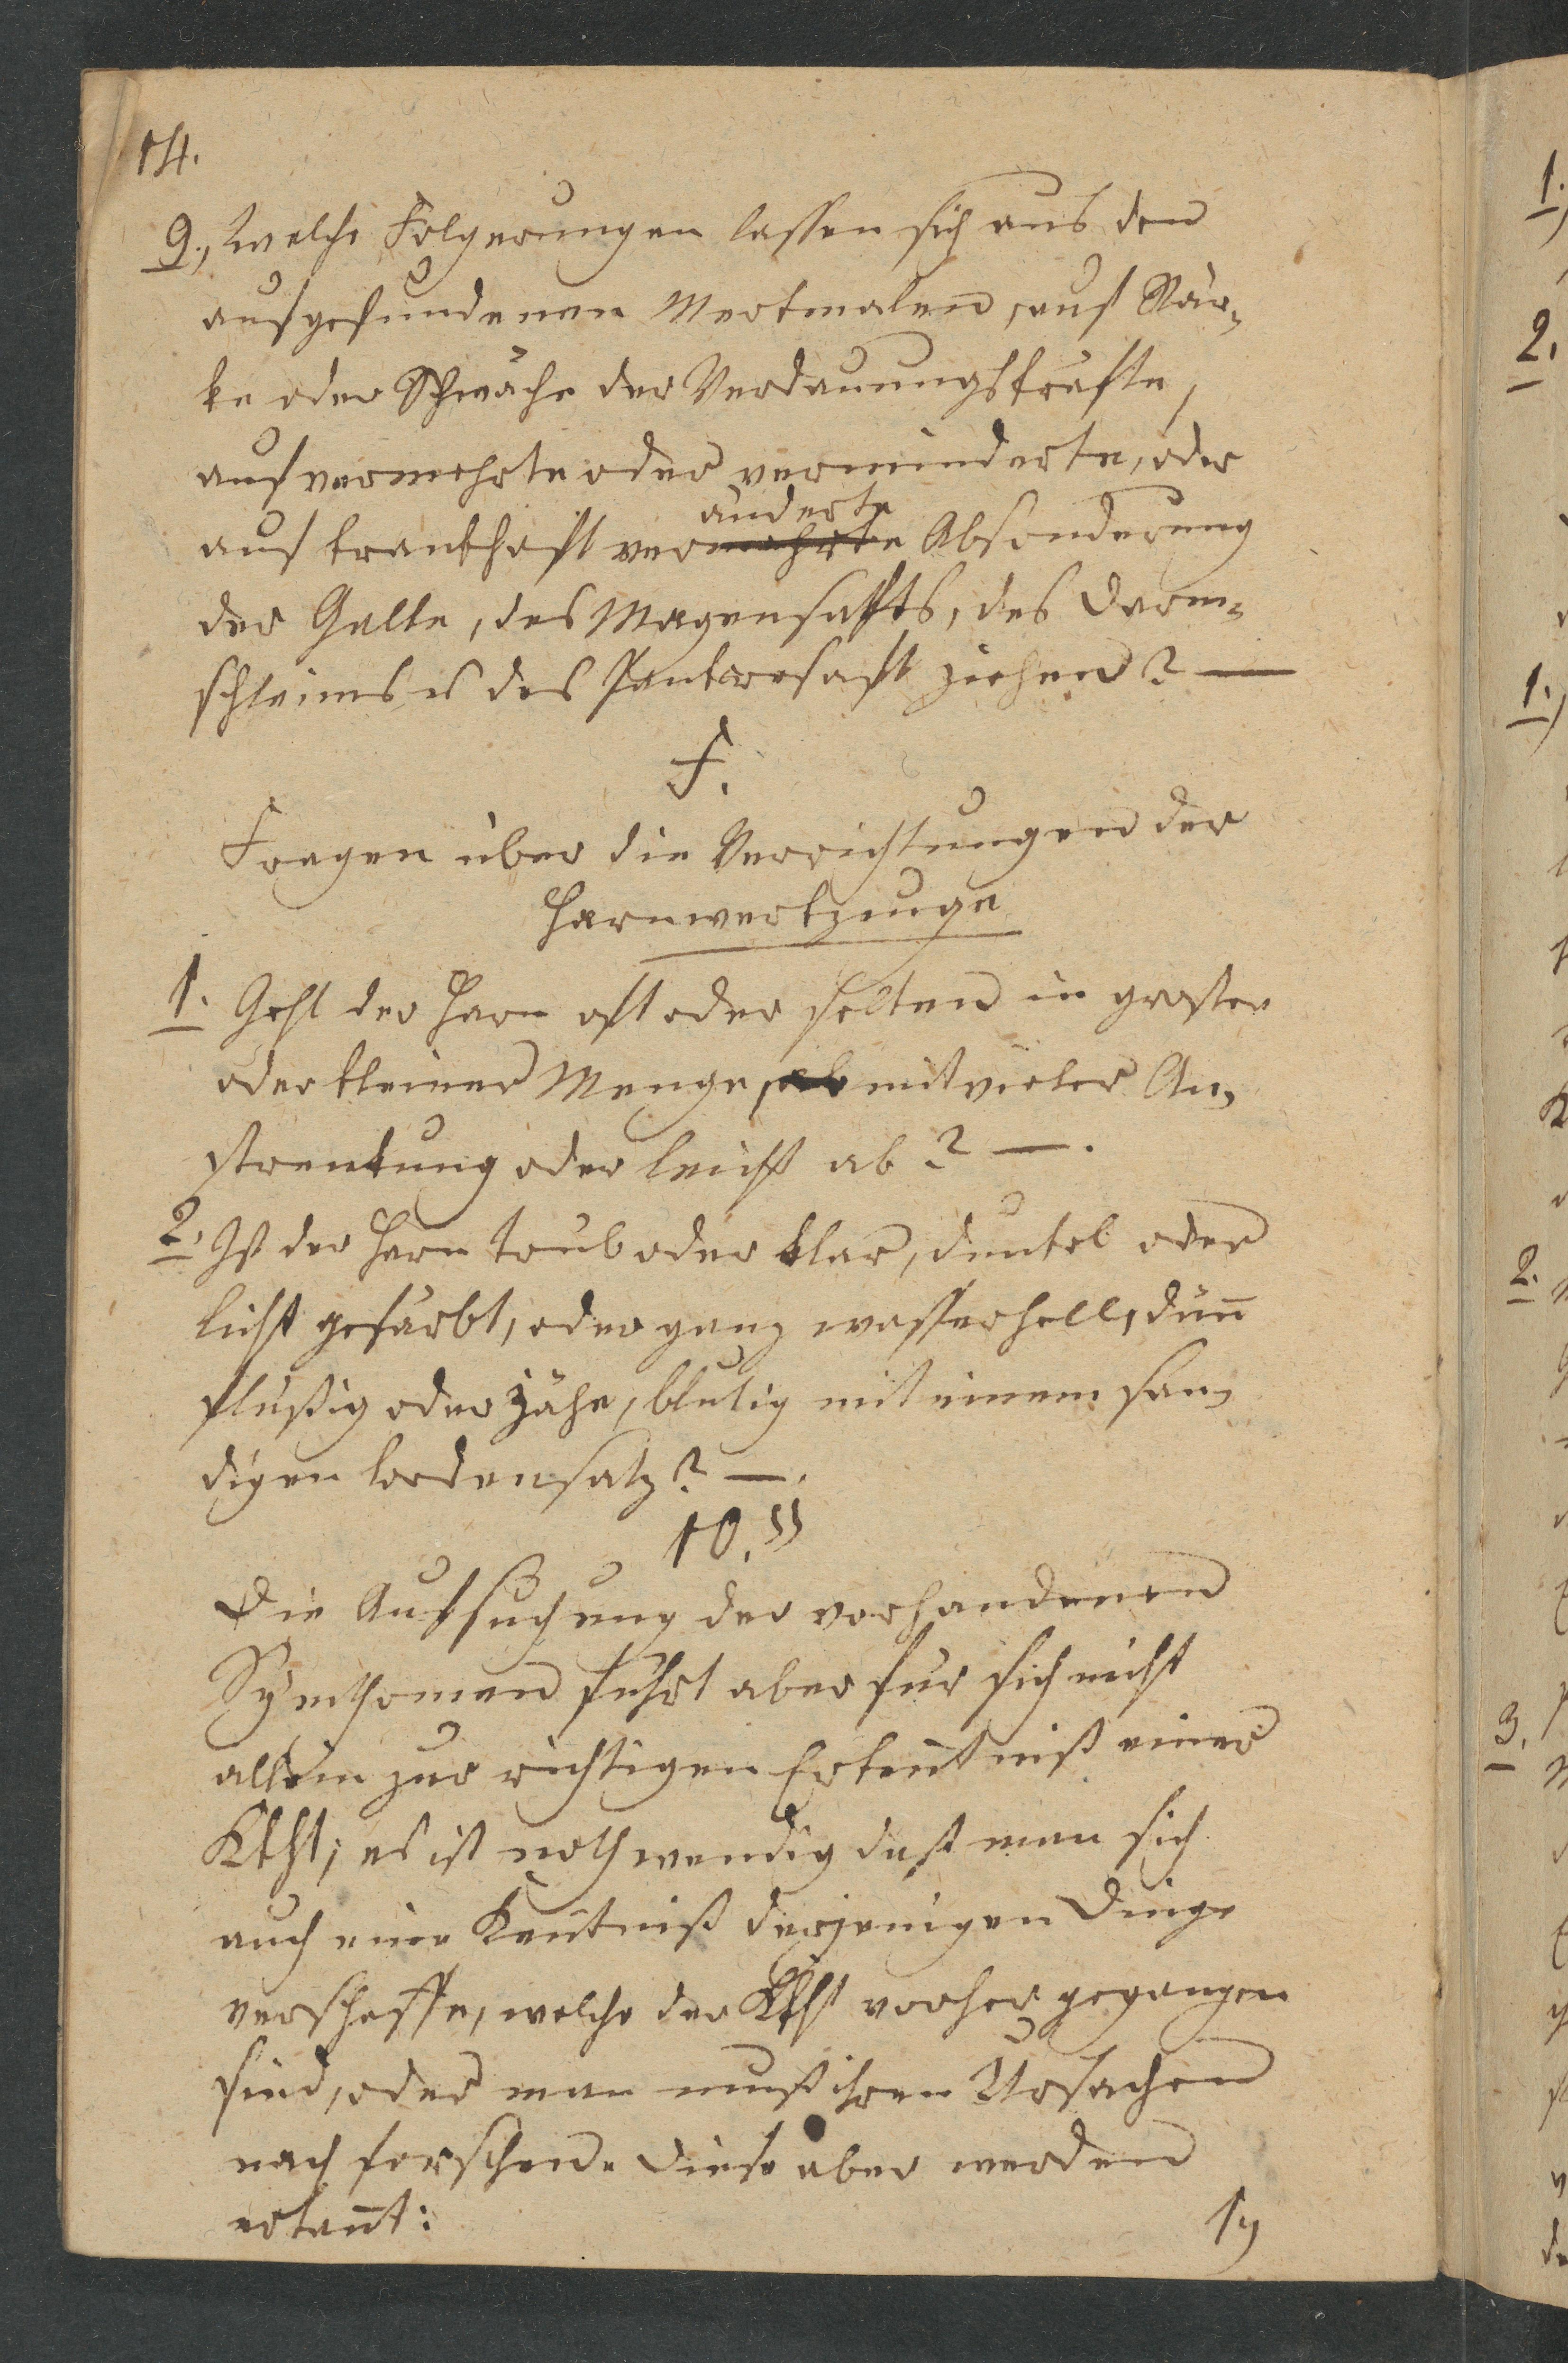 14.
9., Welche Folgerungen lassen sich aus den
aufgefundenen Merkmalen, auf Stär-
ke oder Schwäche der Verdauungskräfte,
auf vermehrte oder verminderte, oder
änderte
auf krankhaft vermehrte Absonderung
der Galle, des Magensafts, des Darm-
schleims u des Pankresaft ziehen? —
F.
Fragen über die Verrichtungen der
Harnwerkzeuge
1. Geht der Harn oft oder selten in großer
oder kleiner Menge, mit vieler An-
strenkung oder leicht ab? —.
2. Ist der Harn trub oder klar, dunkel oder
licht gefärbt, oder ganz wasserhell, dun̄
flußig oder zähe, blutig mit einem san-
digen bodensatz? —.
10. §§
Die Aufsuchung der vorhandenen
Symthomen führt aber für sich nicht
allein zur richtigen Erken̄tniß einer
Kkht; es ist nothwendig daß man sich
auch eine Ken̄tniß derjenigen Dinge
verschaffe, welche der Kkht vorher gegangen
sind, oder man muß ihren Ursachen
nach forschen. Diese aber werden
erkan̄t:
1.)
1.)
2.
1.)
2.
3.